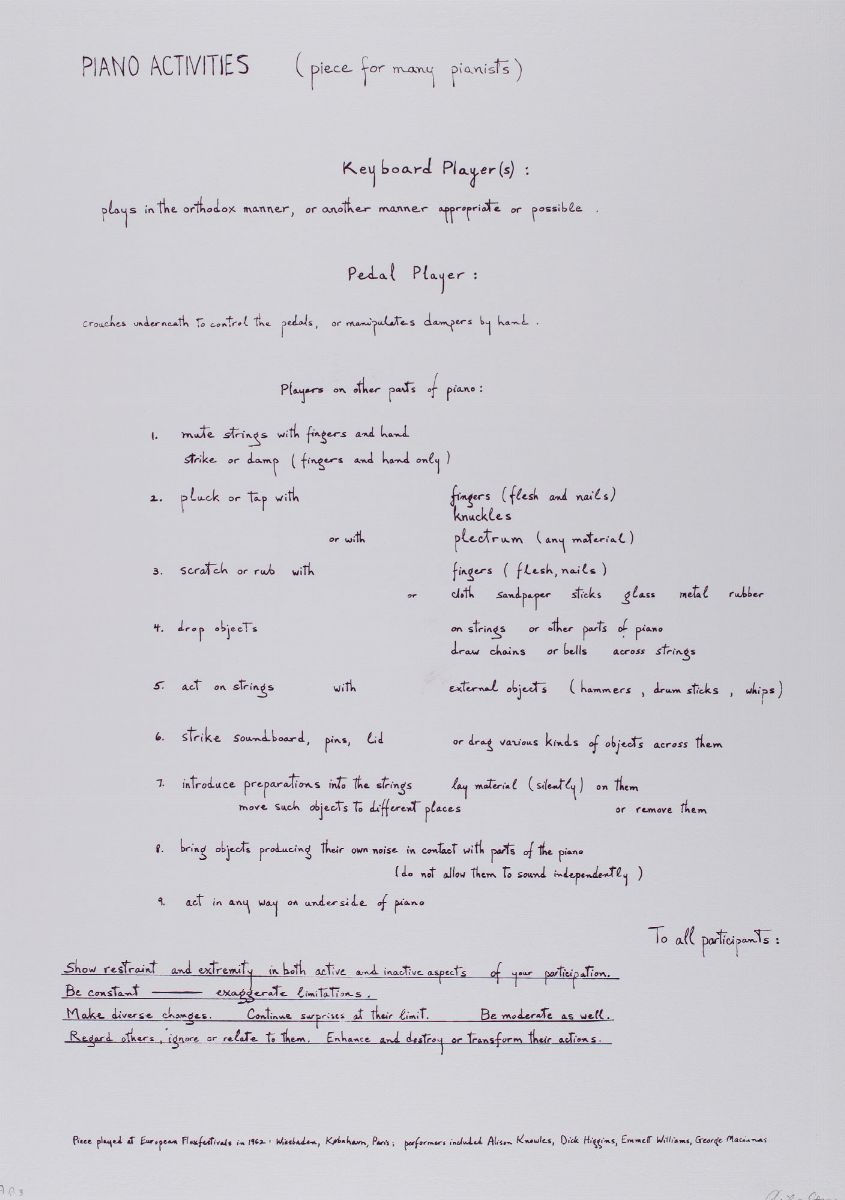 PIANO ACTIVITIES (piece for many pianists)
Keyboard Player(s) :
plays in the orthodox manner, or another manner appropriate or possible .
Pedal Player :
crouches underneath to control the pedals, or manipulates dampers by hand .
Players on other parts of piano :
1. mute strings with fingers and hand
strike or damp (fingers and hand only)
2. pluck or tap with fingers (flesh and nails)
knuckles
or with plectrum (any material)
3. scratch or rub with fingers (flesh, nails)
or cloth sandpaper sticks glass metal rubber
4. drop objects on strings or other parts of piano
draw chains or bells across strings
5. act on strings with external objects (hammers, drum sticks, whips)
6. strike soundboard, pins, lid or drag various kinds of objects across them
7. introduce preparations into the strings lay material (silently) on them
move such objects to different places or remove them
8. bring objects producing their own noise in contact with parts of the piano
(do not allow them to sound independently)
9. act in any way on underside of piano
To all participants :
Show restraint and extremity in both active and inactive aspects of your participation.
Be constant — exaggerate limitations.
Make diverse changes. Continue surprises at their limit. Be moderate as well.
Regard others, ignore or relate to them. Enhance and destroy or transform their actions.
Piece played at European Fluxfestivals in 1962 : Wiesbaden, København, Paris; performers included Alison Knowles, Dick Higgins, Emmett Williams, George Maciunas